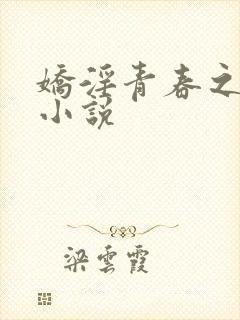 嬌淫青春之
小說
梁雲霞